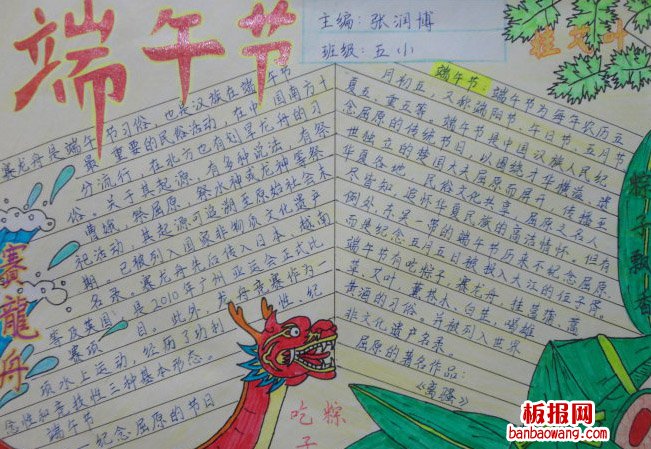 端午节
主编：张润博
班级：五小
挂艾叶
赛龙舟是端午节习俗，也是汉族在端午节
最重要的民俗活动，在中国南方十
分流行，在北方也有划旱龙舟的习
俗。关于其起源，有多种说法，有祭
曹娥，祭屈原，祭水神或龙神等祭
祀活动，其起源可追溯至原始社会末
期。已被列入国家非物质文化遗产
名录。赛龙舟先后传入日本、越南
等及英国，是2010年广州亚运会正式比
赛项目。此外，龙舟竞赛作为
一项水上运动，经历了功利性、纪
念性和竞技性三种基本形态。
端午节
纪念屈原的节日
赛龍舟
端午节：端午节为每年农历五
月初五，又称端阳节、午日节、五月节
夏五、重五等。端午节是中国汉族人民纪
念屈原的传统节日，以围绕才华横溢、遗
世独立的楚国大夫屈原而展开，传播至
华夏各地，民俗文化共享，屈原之名人
尽皆知，追怀华夏民族的高洁情怀。但有
例外东吴一带的端午节历来不纪念屈原，
而是纪念五月五日被投入大江的伍子胥
端午节有吃粽子，赛龙舟，挂菖蒲、蒿
草、艾叶，薰苍术、白芷，喝雄
黄酒的习俗。并被列入世界
非文化遗产名录。
屈原的著名作品：
《离骚》
粽子飘香
吃粽子
板报网
banbaowang.com